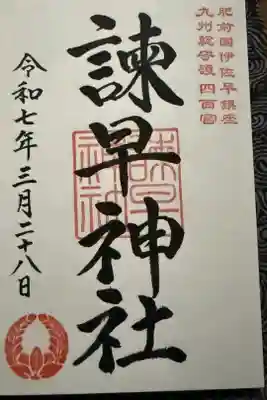 肥前国伊佐早鎮座
九州総守護 四百宮
諫早神社
諫早神社
令和七年三月二十八日